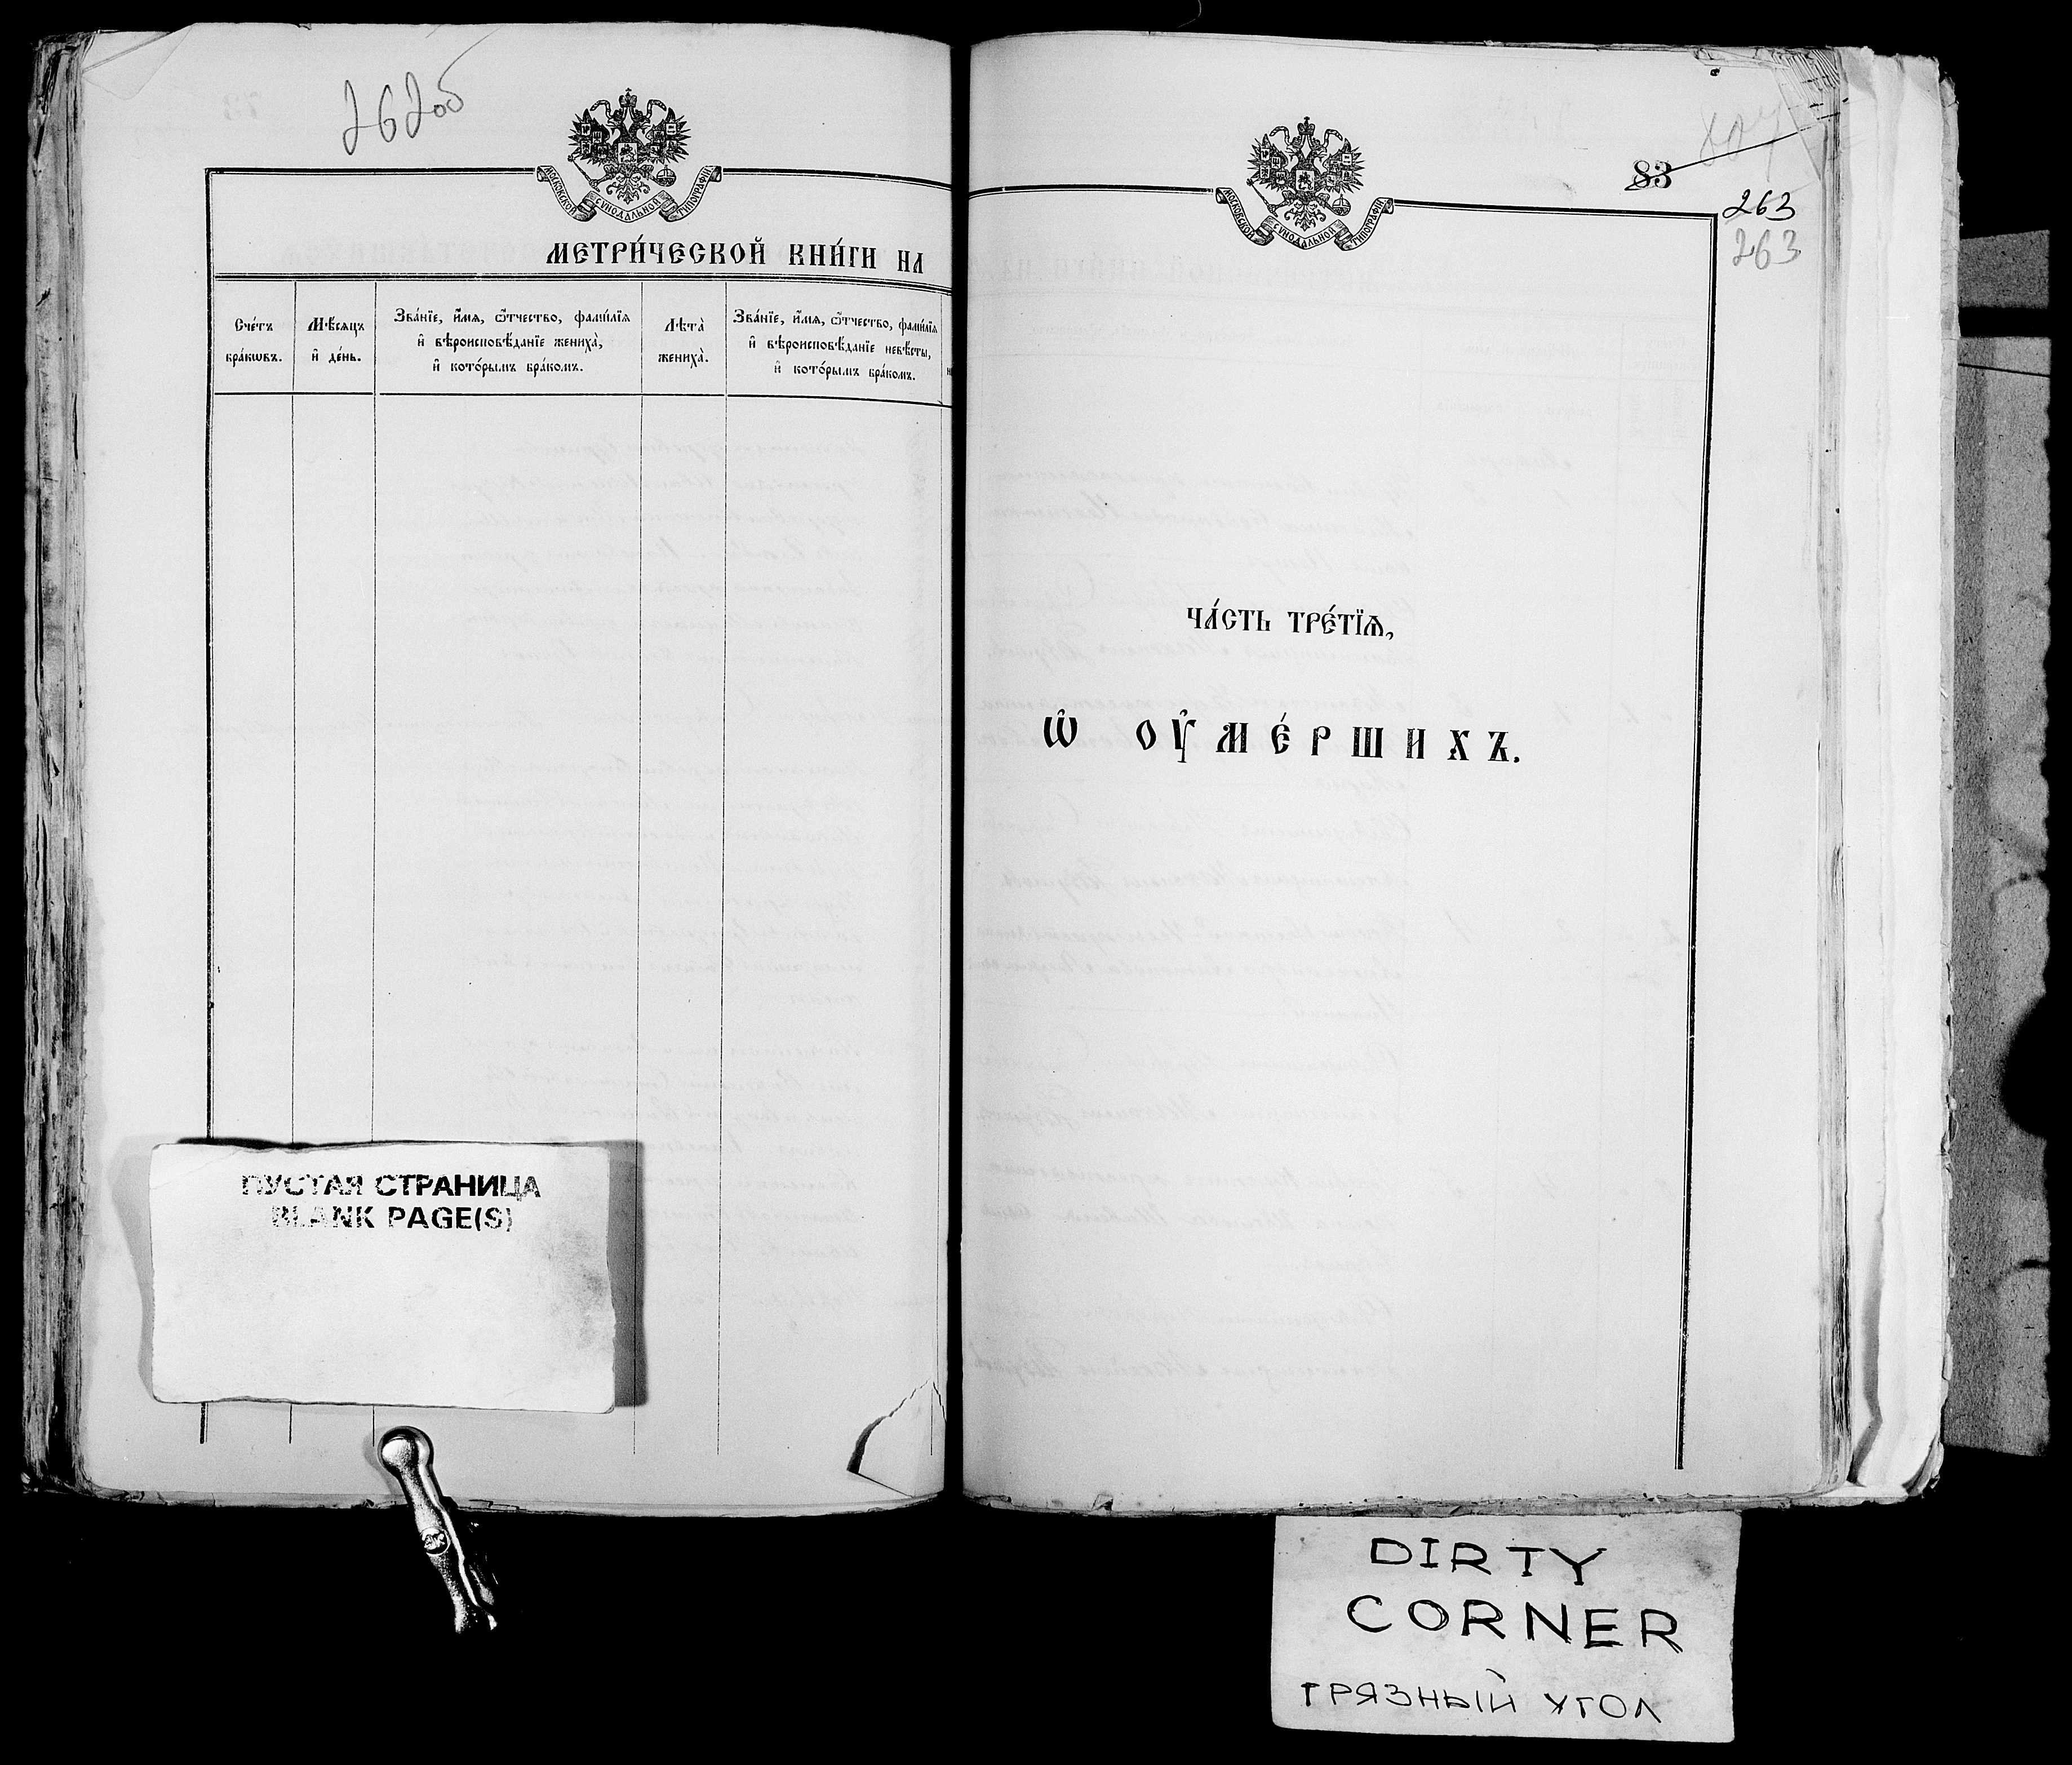 262об
МОСКОВСКОЙ СѴНОДАЛЬНОЙ ТИПОГРАФІИ
МЕТРИ́ЧЕСКОЙ КНИ́ГИ НА
Сче́тъ
бра́кѡвъ.
Мѣ́сѧцъ
и҆ де́нь.
Зва́нїе, и҆́мѧ, ѻ҆́тчество, фами́лїѧ
и҆ вѣроисповѣ́данїе жениха̀,
и҆ кото́рымъ бра́комъ.
Лѣта̀
жениха̀.
Зва́нїе, и҆́мѧ, ѻ҆́тчество, фами́лїѧ
и҆ вѣроисповѣ́данїе невѣ́сты,
и҆ кото́рымъ бра́комъ.
ПУСТАЯ СТРАНИЦА
BLANK PAGE(S)
МОСКОВСКОЙ СѴНОДАЛЬНОЙ ТИПОГРАФІИ
83
263
263
ЧА́СТЬ ТРЕ́ТЇѦ,
Ѡ҆ ОУ҆МЕ́РШИХЪ.
DIRTY
CORNER
ГРЯЗНЫЙ УГОЛ